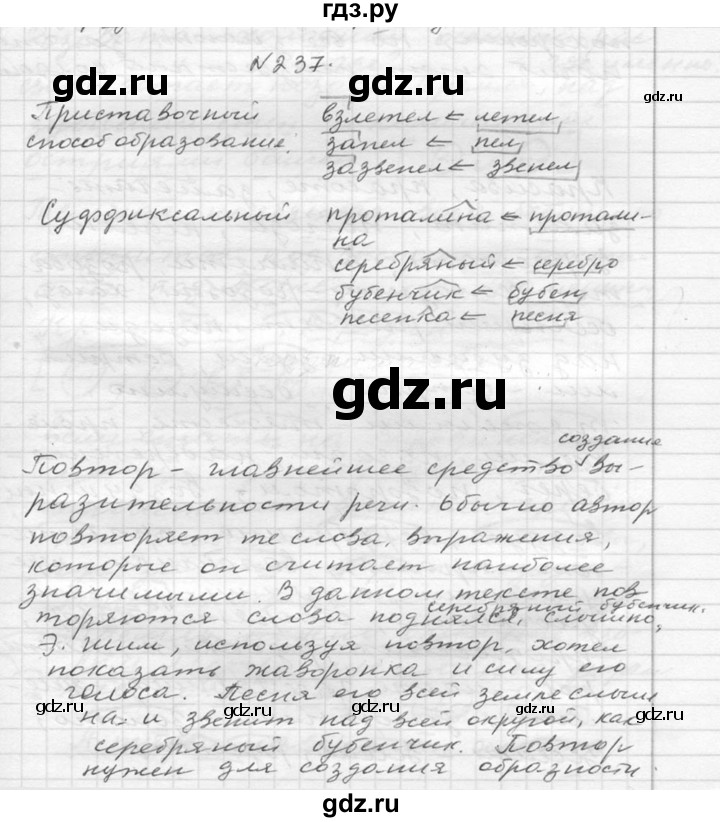 гдз.ру
№237.
gdz.ru gdz.ru
Приставочный взлетел ← летел
способ образование. запел ← пел
зазвенел ← звенел
Суффиксальный проталина ← протали-
на
серебряный ← серебро
бубенчик ← бубен
песенка ← песня
gdz.ru
создание
Повтор – главнейшее средство вы-
разительности речи. Обычно автор
повторяет те слова, выражения,
которые он считает наиболее
значимыми. В данном тексте пов
серебряный бубенчик.
торяются слова поднялся, слышно,
Э. Шим, используя повтор, хотел
показать жаворонка и силу его
голоса. Песня его всей земле слыш
gdz.ru gdz.ru gdz.ru gdz.ru gdz.ru
на и звенит над всей округой, как
серебряный бубенчик. Повтор
нужен для создания образности.
gdz.ru